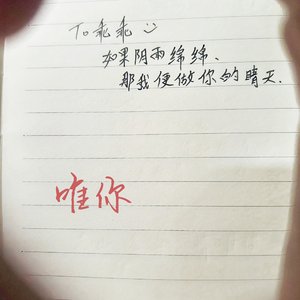 To 乖乖
如果阴雨绵绵、
那我便做你的晴天.
唯你